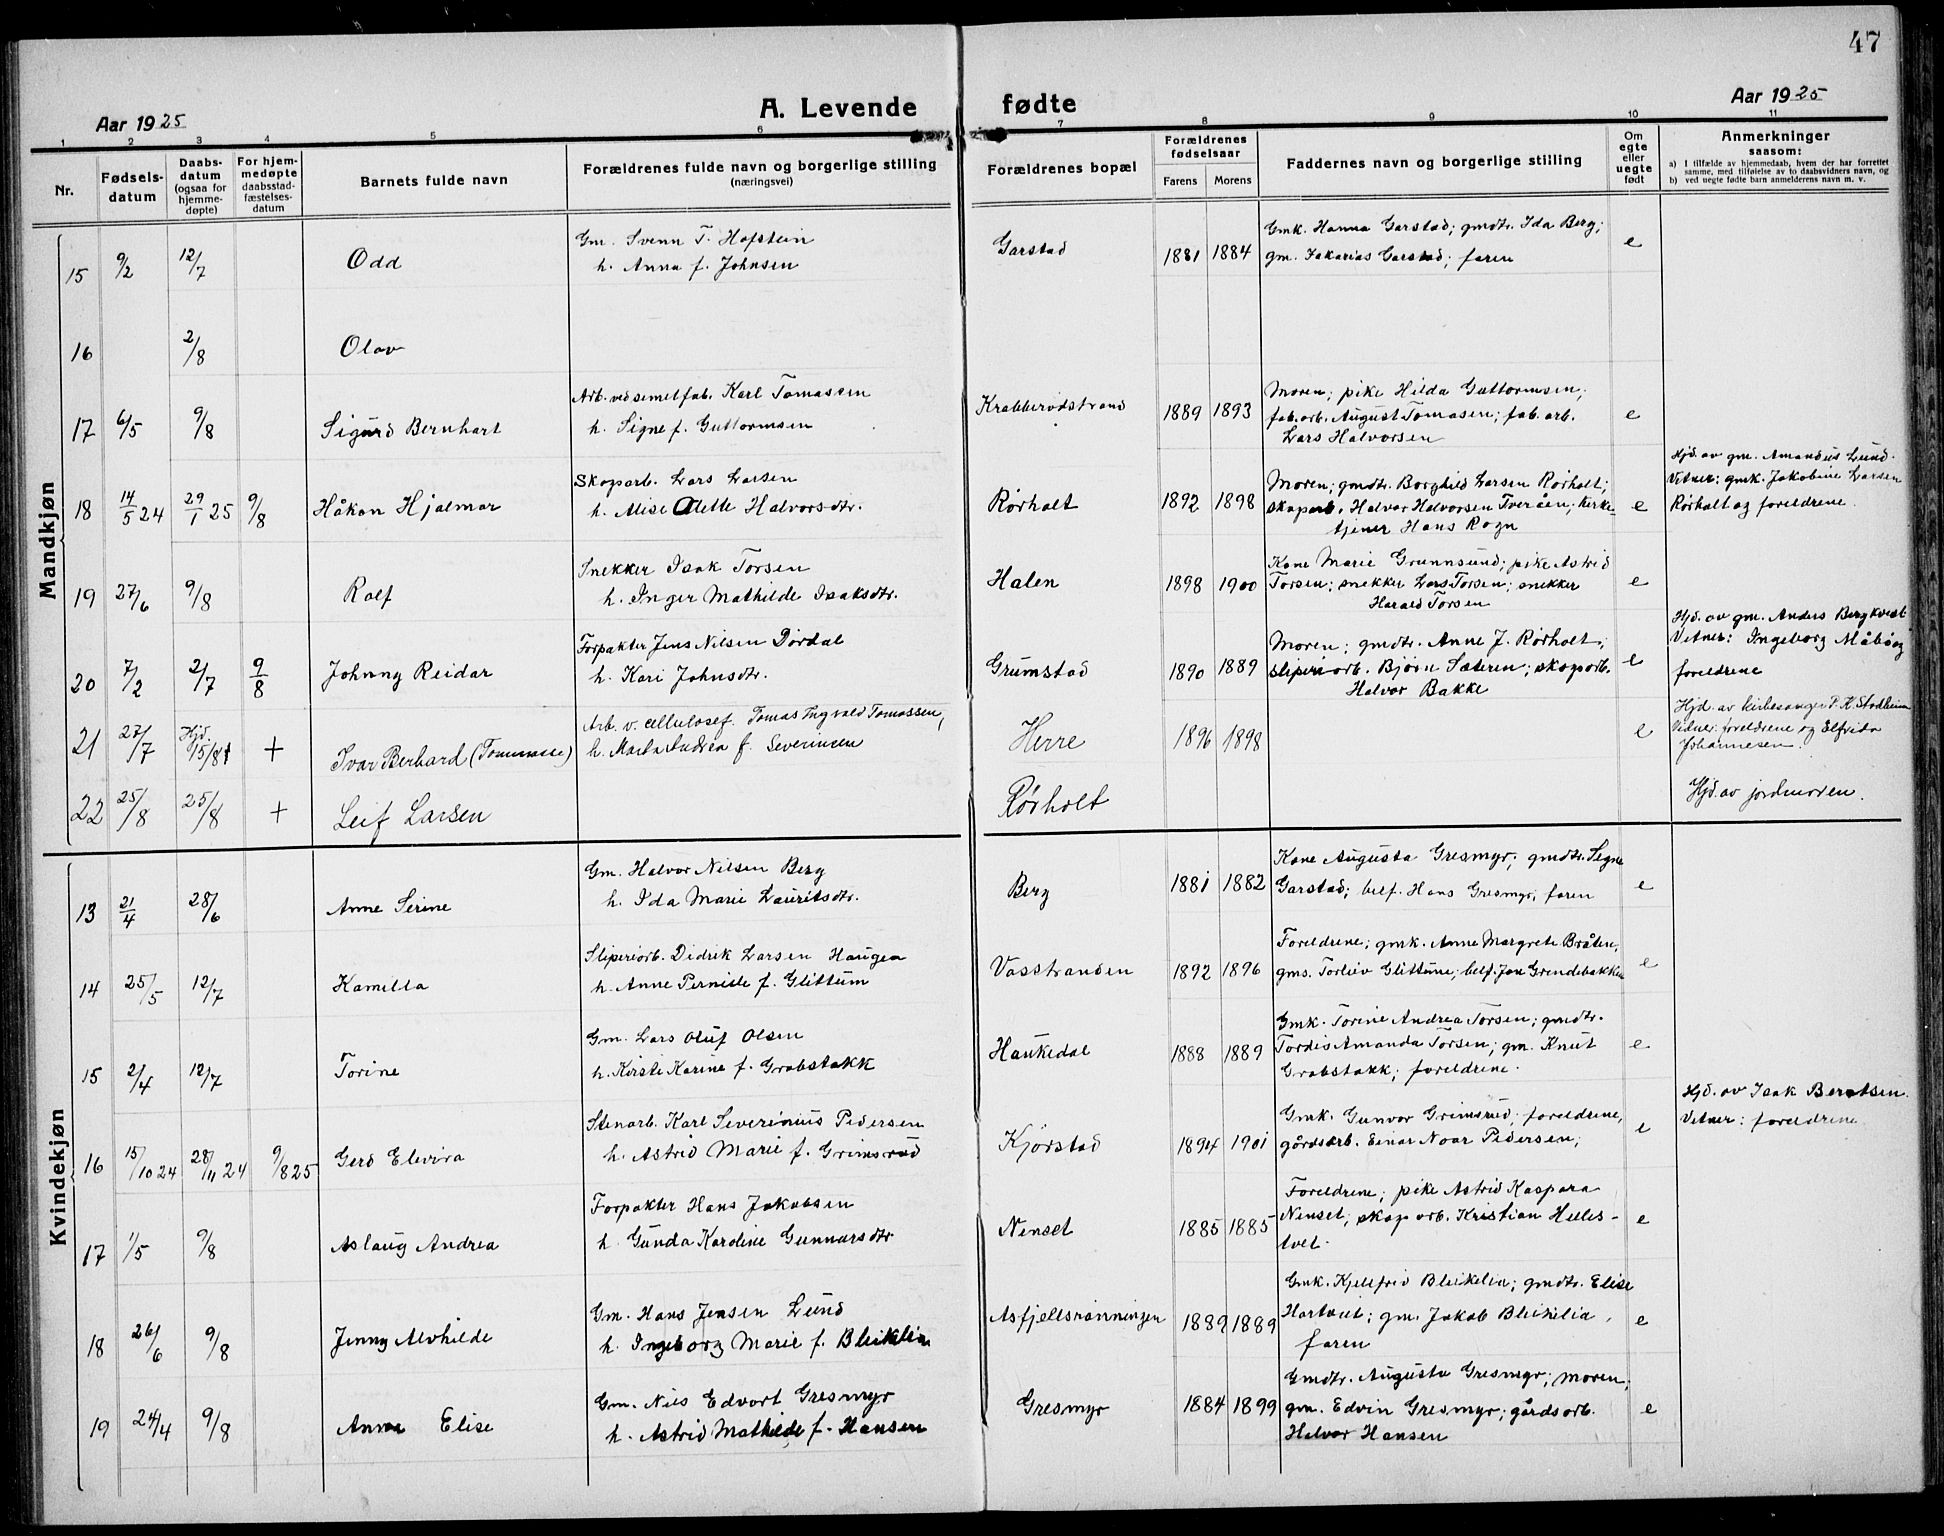 47
Aar 1925
A. Levende fødte
Aar 1925
1 2 3 4 5 6 7 8 9 10 11
Nr.
Fødsels-
datum
Daabs-
datum
(ogsaa for
hjemme-
døpte)
For hjem-
medøpte
daabsstad-
fæstelses-
datum
Barnets fulde navn
Forældrenes fulde navn og borgerlige stilling
(næringsvei)
Forældrenes bopæl
Forældrenes
fødselsaar
Farens Morens
Faddernes navn og borgerlige stilling
Om
egte
eller
uegte
født
Anmerkninger
saasom:
a) I tilfælde av hjemmedaab, hvem der har forrettet
samme, med tilføielse av to daabsvidners navn, og
b) ved uegte fødte barn anmelderens navn m. v.
Mandkjøn
15 9/2 12/7 Odd
Gm. Svenn T. Hofstein
h. Anna f. Johnsen
Garstad 1881 1884
Gmk. Hanna Garstad; gmdtr. Ida Berg;
gm. Sakarias Garstad; faren
e
16 2/8 Olav
17 6/5 9/8 Sigurd Bernhart
Arb. ved semetfab. Karl Tomassen
h. Signe f. Guttormsen
Krabberødstrand 1889 1893
Moren; pike Hilda Guttormsen;
fab.arb. August Tomasen; fab.arb.
Lars Halvorsen
e
18 14/5 24 29/1 25 9/8 Håkon Hjalmar
Skogarb. Lars Larsen
h. Alise Alette Halvorsdtr.
Rørholt 1892 1898
Moren; gmdtr. Borghild Larsen Rørholt;
skogarb. Halvor Halvorsen Tveråen; kirke-
tjener Hans Rogn
e
Hjd. av gm. Amandus Lund.
Vitner: gmk. Jakobine Larsen
Rørholt og foreldrene.
19 27/6 9/8 Rolf
Snekker Isak Torsen
h. Inger Mathilde Isaksdtr.
Halen 1898 1900
Kone Marie Grunnsund; pike Astrid
Torsen; snekker Lars Torsen; snekker
Harald Torsen
e
20 7/2 2/7 9/8 Johnny Reidar
Forpakter Jens Nilsen Dørdal
h. Kari Johnsdtr.
Grumstad 1890 1889
Moren; gmdtr. Anne J. Rørholt;
sliperiarb. Bjørn Sæteren; skogarb.
Halvor Bakke
e
Hjd. av gm. Anders Bergkvist
Vitner: Ingeborg Måbøeg
foreldrene
21 27/7 Hjd. 15/8 + Ivar Berhard (Tommasse)
Arb. v. cellulosef. Tomas Ingvald Tomassen,
h. Marta Andrea f. Severinsen
Herre 1896 1898
e
Hjd. av kirkesanger P. K. Stodheim
Vidner: foreldrene og Elfrida
Johannesen.
22 25/8 25/8 + Leif Larsen
Rørholt
Hjd. av jordmoren.
Kvindekjøn
13 21/4 28/6 Anne Serine
Gm. Halvor Nilsen Berg
h. Ida Marie Lauritsdtr.
Berg 1881 1882
Kone Augusta Gresmyr; gmdtr. Signe
Garstad; belf. Hans Gresmyr; faren
e
14 25/5 12/7 Kamilla
Sliperiarb. Didrik Larsen Haugen
h. Anne Pernille f. Glittum
Vasstranden 1892 1896
Foreldrene; gmk. Anne Margrete Bråten;
gms. Torleiv Glittum; belf. Jon Grendebakken
e
15 2/4 12/7 Torine
Gm. Lars Oluf Olsen
h. Kirsti Karine f. Grobstokk
Haukedal 1888 1889
Gmk. Torine Andrea Torsen; gmdtr.
Tordis Amanda Torsen; gm. Knut
Grobstokk; foreldrene.
e
16 15/10 24 28/11 24 9/8 25 Gerd Elevira
Stenarb. Karl Severinius Pedersen
h. Astrid Marie f. Grimsrud
Kjørstad 1894 1901
Gmk. Gunvor Grimsrud; foreldrene,
gårdsarb. Einar Noar Pedersen;
e
Hjd. av Isak Berntsen.
Vitner: foreldrene.
17 1/5 9/8 Aslaug Andrea
Forpakter Hans Jakobsen
h. Gunda Karoline Gunnarsdtr
Nenset 1885 1885
Foreldrene; pike Astrid Kaspara
Nenset; skogarb. Kristian Helles-
tvet.
e
18 26/6 9/8 Jenny Alvhilde
Gm. Hans Jensen Lund
h. Ingeborg Marie f. Bleiklia
Asfjellsrønningen 1889 1889
Gmk. Kjellfrid Bleiklia; gmdtr. Elise
Hartvit; gm. Jakob Bleiklia,
faren
e
19 24/4 9/8 Anna Elise
Gm. Nils Edvort Gresmyr
h. Astrid Mathilde f. Hansen
Gresmyr 1884 1899
Gmdtr. Augusta Gresmyr; moren;
gm. Edvin Gresmyr; gårdsarb.
Halvor Hansen
e